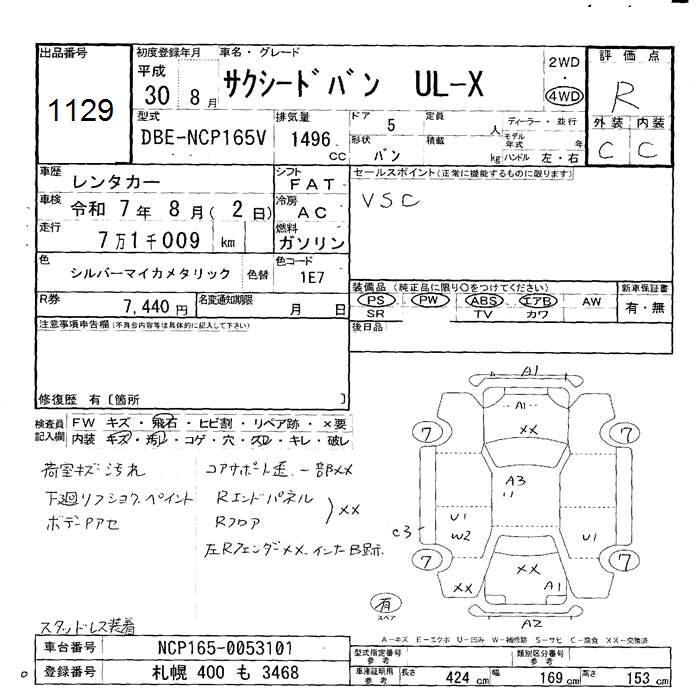 出品番号
1129
初度登録年月
平成
30 8月
車名・グレード
サクシードバン UL-X
2WD
・
4WD
評価点
R
外装 内装
C C
型式
DBE-NCP165V
排気量
1496 cc
ドア 5
定員 人
ディーラー・並行
形状 バン
積載 kg
モデル年式 年
ハンドル 左・右
車歴 レンタカー
シフト FAT
車検 令和 7年 8月( 2日)
冷房 AC
走行 7万1千009 km
燃料 ガソリン
色 シルバーマイカメタリック 色替
色コード 1E7
R券 7,440円
名変通知期限 月 日
セールスポイント(正常に機能するものに限ります)
VSC
装備品 (純正品に限り○をつけてください)
PS PW ABS エアB AW
SR TV カワ
新車保証書
有・無
後日品
注意事項申告欄(不具合内容等は具体的に記入して下さい)
修復歴 有〔箇所 〕
検査員記入欄
FW キズ・飛石・ヒビ割・リペア跡・×要
内装 キズ・汚れ・コゲ・穴・スレ・キレ・破し
荷室キズ汚れ
下廻リフショク、ペイント
ボデーPアセ
コアサポート歪、一部XX
Rエンドパネル
Rフロア
XX
左Rフェンダーメメ、インナーB跡
スタッドレス装着
A1
A1
XX
7
7
A3
U1
W2
C3
U1
7
7
XX
XX
A1
A2
有
スペア
A-キズ E-エクボ U-凹み W-補修跡 S-サビ C-腐食 XX-交換済
車台番号 NCP165-0053101
登録番号 札幌 400 も 3468
型式指定番号 参考
類別区分番号 参考
車庫証明用 参考
長さ 424 cm
幅 169 cm
高さ 153 cm